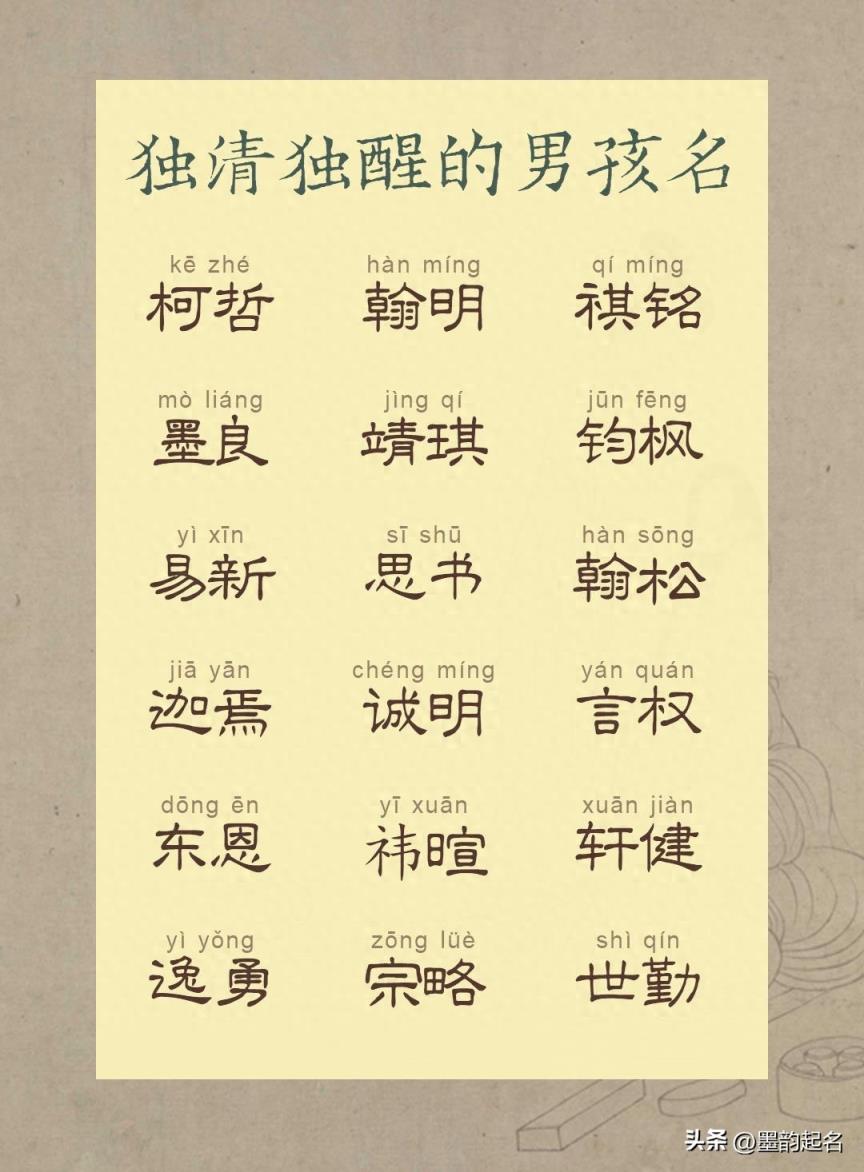 独清独醒的男孩名
kē zhé hàn míng qí míng
柯哲 翰明 祺铭
mò liáng jìng qí jūn fēng
墨良 靖琪 钧枫
yì xīn sī shū hàn sōng
易新 思书 翰松
jiā yān chéng míng yán quán
迦焉 诚明 言权
dōng ēn yī xuān xuān jiàn
东恩 祎暄 轩健
yì yǒng zōng lüè shì qín
逸勇 宗略 世勤
头条 @墨韵起名